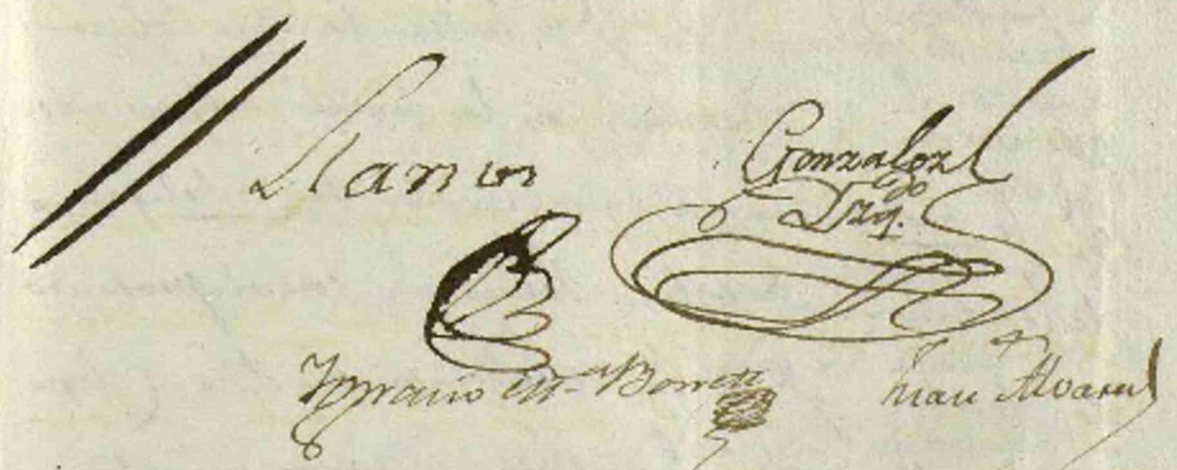 Llanos Gonzalez
Yzq.do
Ignacio M.a Borreti
Juan Alvarez